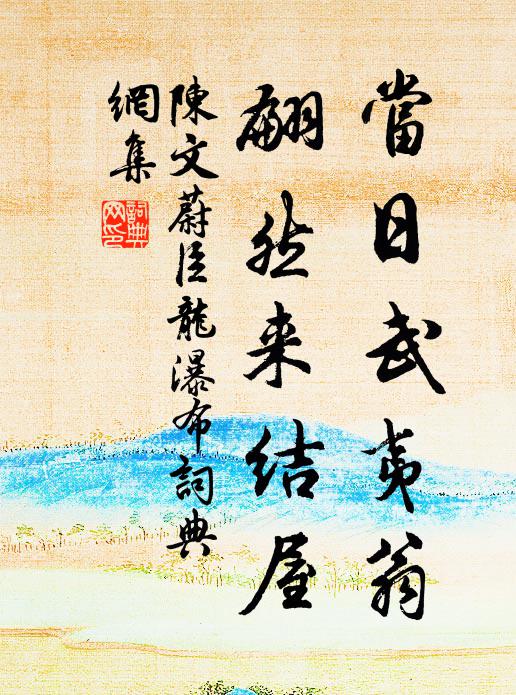 當日武夷翁
翩然来結屋
陳文蔚臣龍瀑布詞典
網集
詞典網印